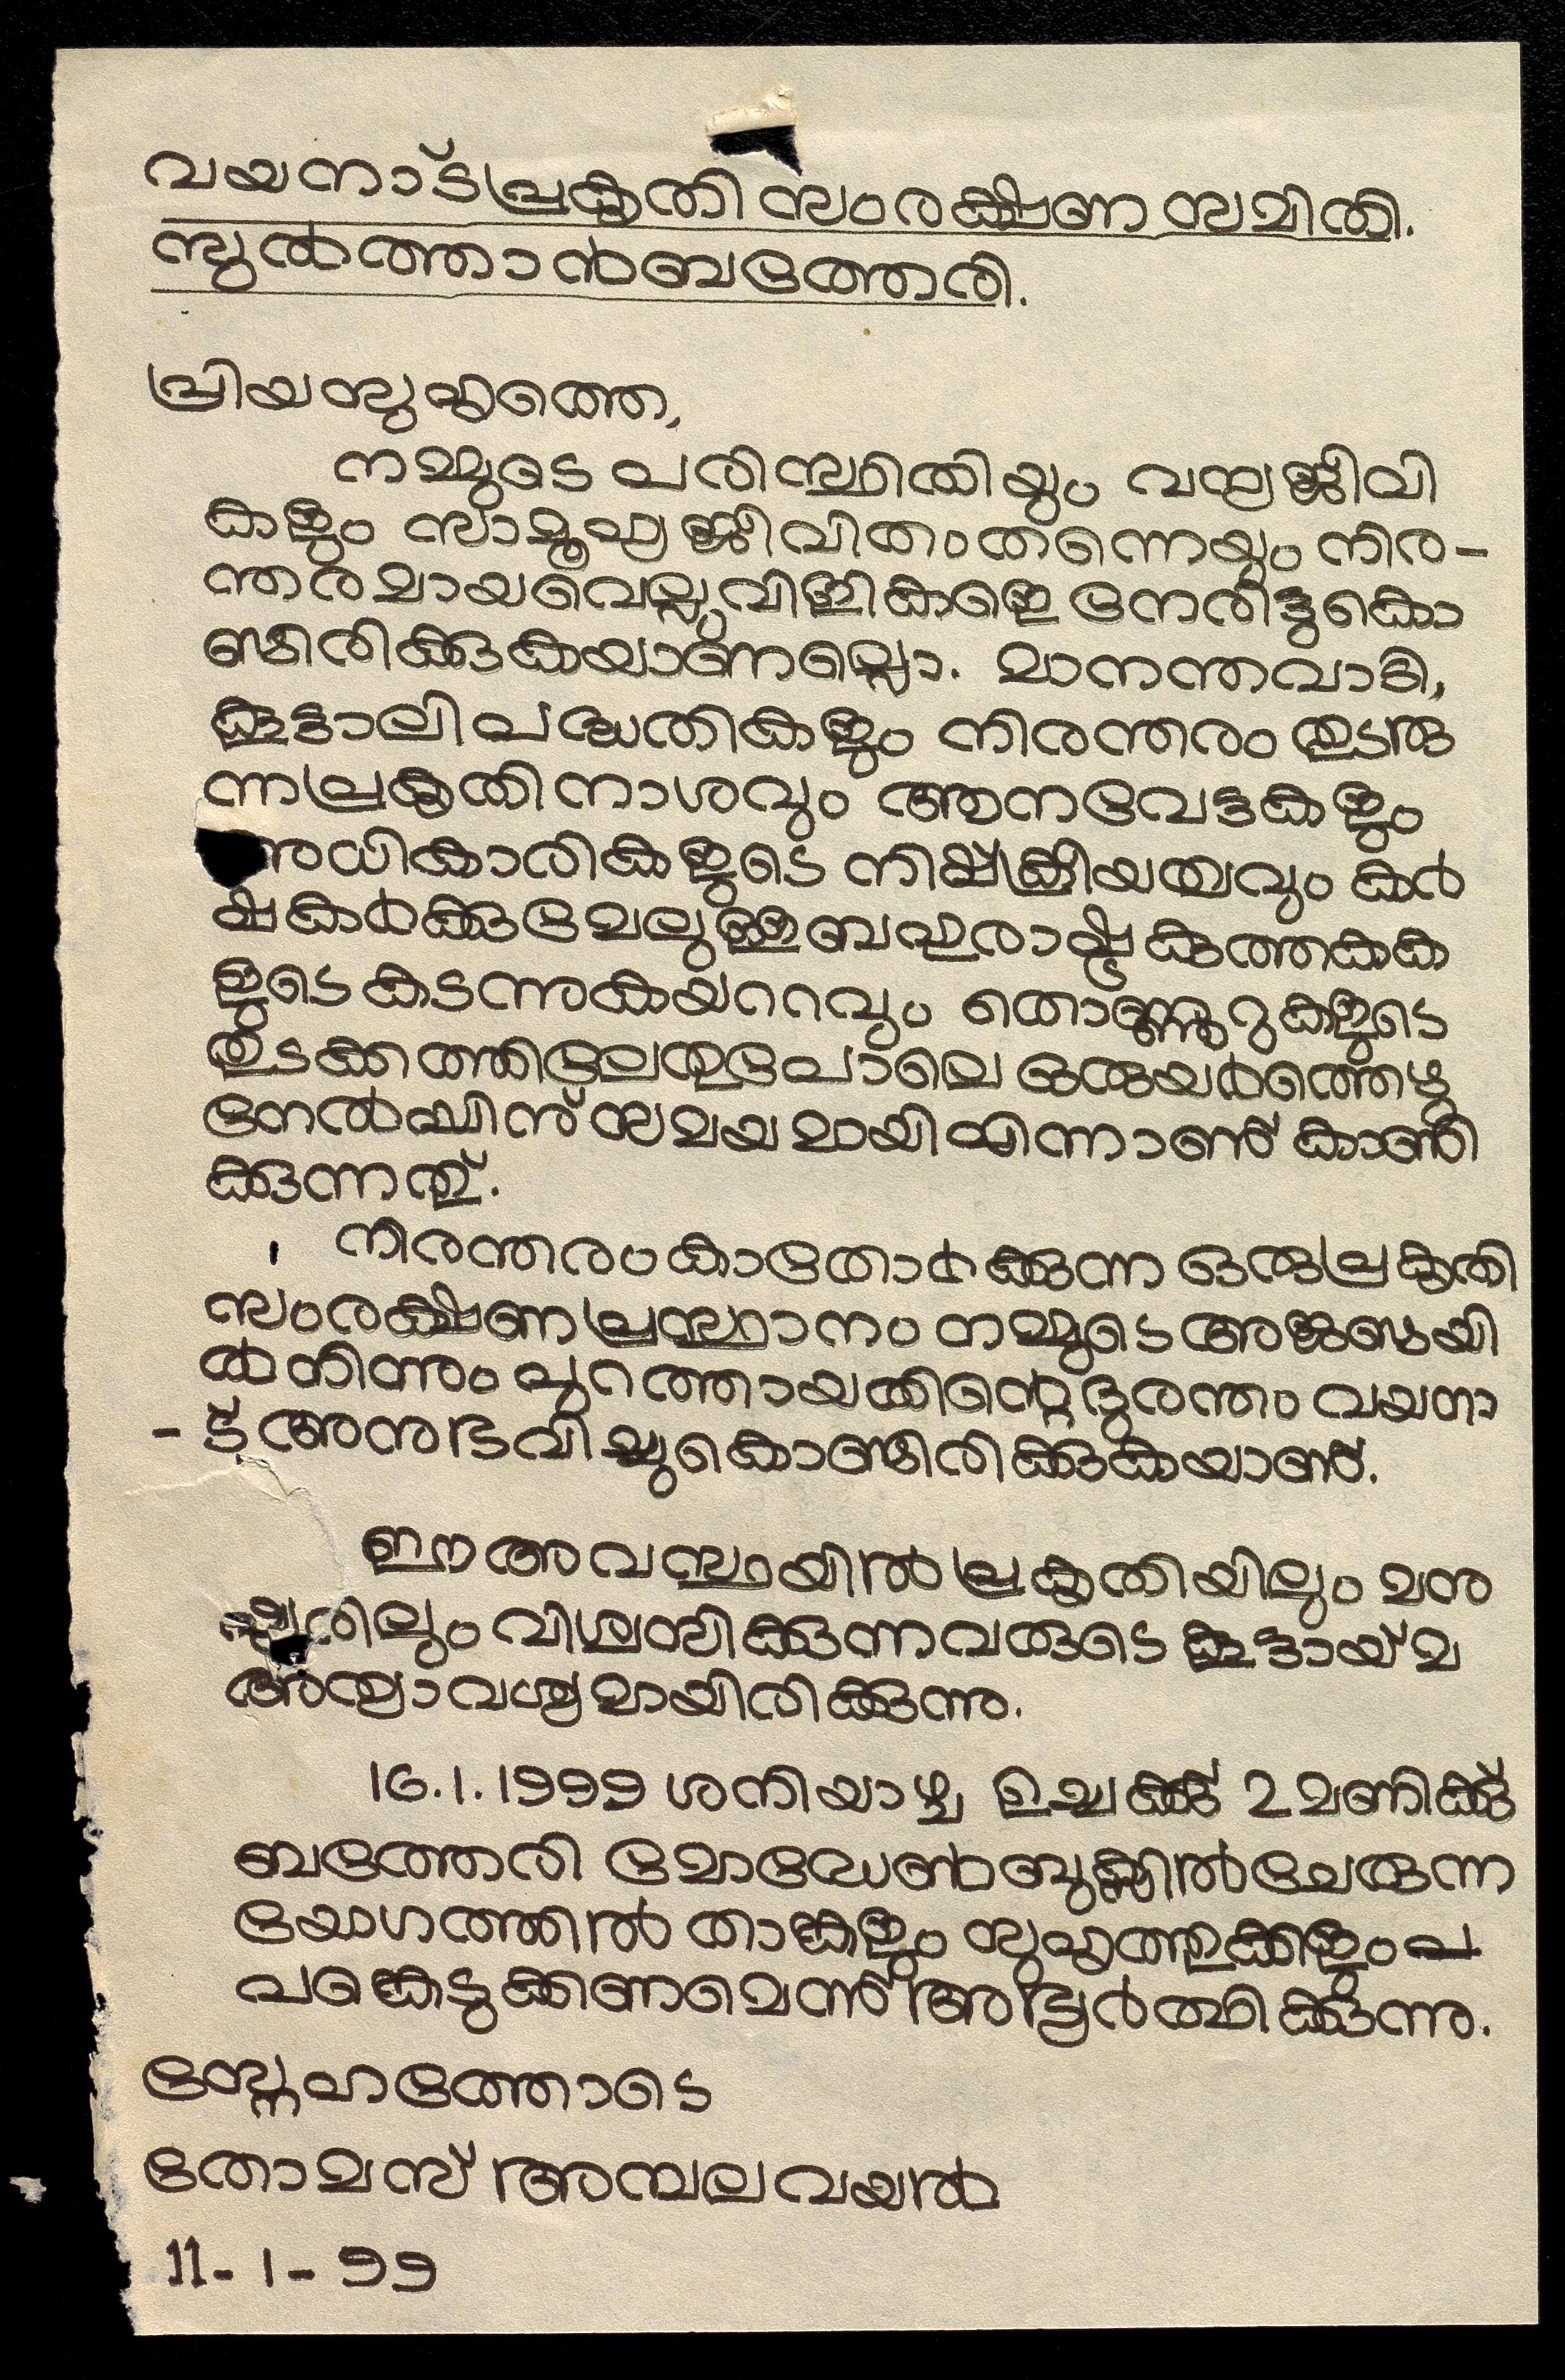 വയനാട് പ്രകൃതി സംരക്ഷണ സമിതി.
സുൽത്താൻബത്തേരി.
പ്രിയസുഹൃത്തെ,
നമ്മുടെ പരിസ്ഥിതിയും വന്യജീവി
കളും സാമൂഹ്യജീവിതംതന്നെയും നിര-
ന്തരമായവെല്ലുവിളികളെ നേരിട്ടുകൊ
ണ്ടിരിക്കുകയാണല്ലൊ. മാനന്തവാടി,
കൂട്ടാലി പദ്ധതികളും നിരന്തരം തുടരു
ന്നപ്രകൃതിനാശവും ആനവേട്ടകളും
അധികാരികളുടെ നിഷ്ക്രിയത്വവും കർ
ഷകർക്കുമേലുള്ള ബഹുരാഷ്ട്ര കുത്തകക
ളുടെ കടന്നുകയററവും തൊണ്ണൂറുകളുടെ
തുടക്കത്തിലേതുപോലെ ഒരുയർത്തെഴു
ന്നേൽപ്പിന് സമയമായി എന്നാണ് കാണി
ക്കുന്നത്.
നിരന്തരം കാതോർക്കുന്ന ഒരുപ്രകൃതി
സംരക്ഷണപ്രസ്ഥാനം നമ്മുടെഅജണ്ടയി
ൽ നിന്നും പുറത്തായതിന്റെ ദുരന്തം വയനാ
- ട് അനുഭവിച്ചുകൊണ്ടിരിക്കുകയാണ്.
ഈ അവസ്ഥയിൽ പ്രകൃതിയിലും മനു
ഷ്യരിലും വിശ്വസിക്കുന്നവരുടെ കൂട്ടായ്മ
അത്യാവശ്യമായിരിക്കുന്നു.
16.1.1999 ശനിയാഴ്ച ഉച്ചക്ക് 2 മണിക്ക്
ബത്തേരി മോഡേൺബുക്സിൽ ചേരുന്ന
യോഗത്തിൽ താങ്കളും സുഹൃത്തുക്കളും
പങ്കെടുക്കണമെന്ന് അഭ്യർത്ഥിക്കുന്നു.
സ്നേഹത്തോടെ
തോമസ് അമ്പലവയൽ
11-1-99